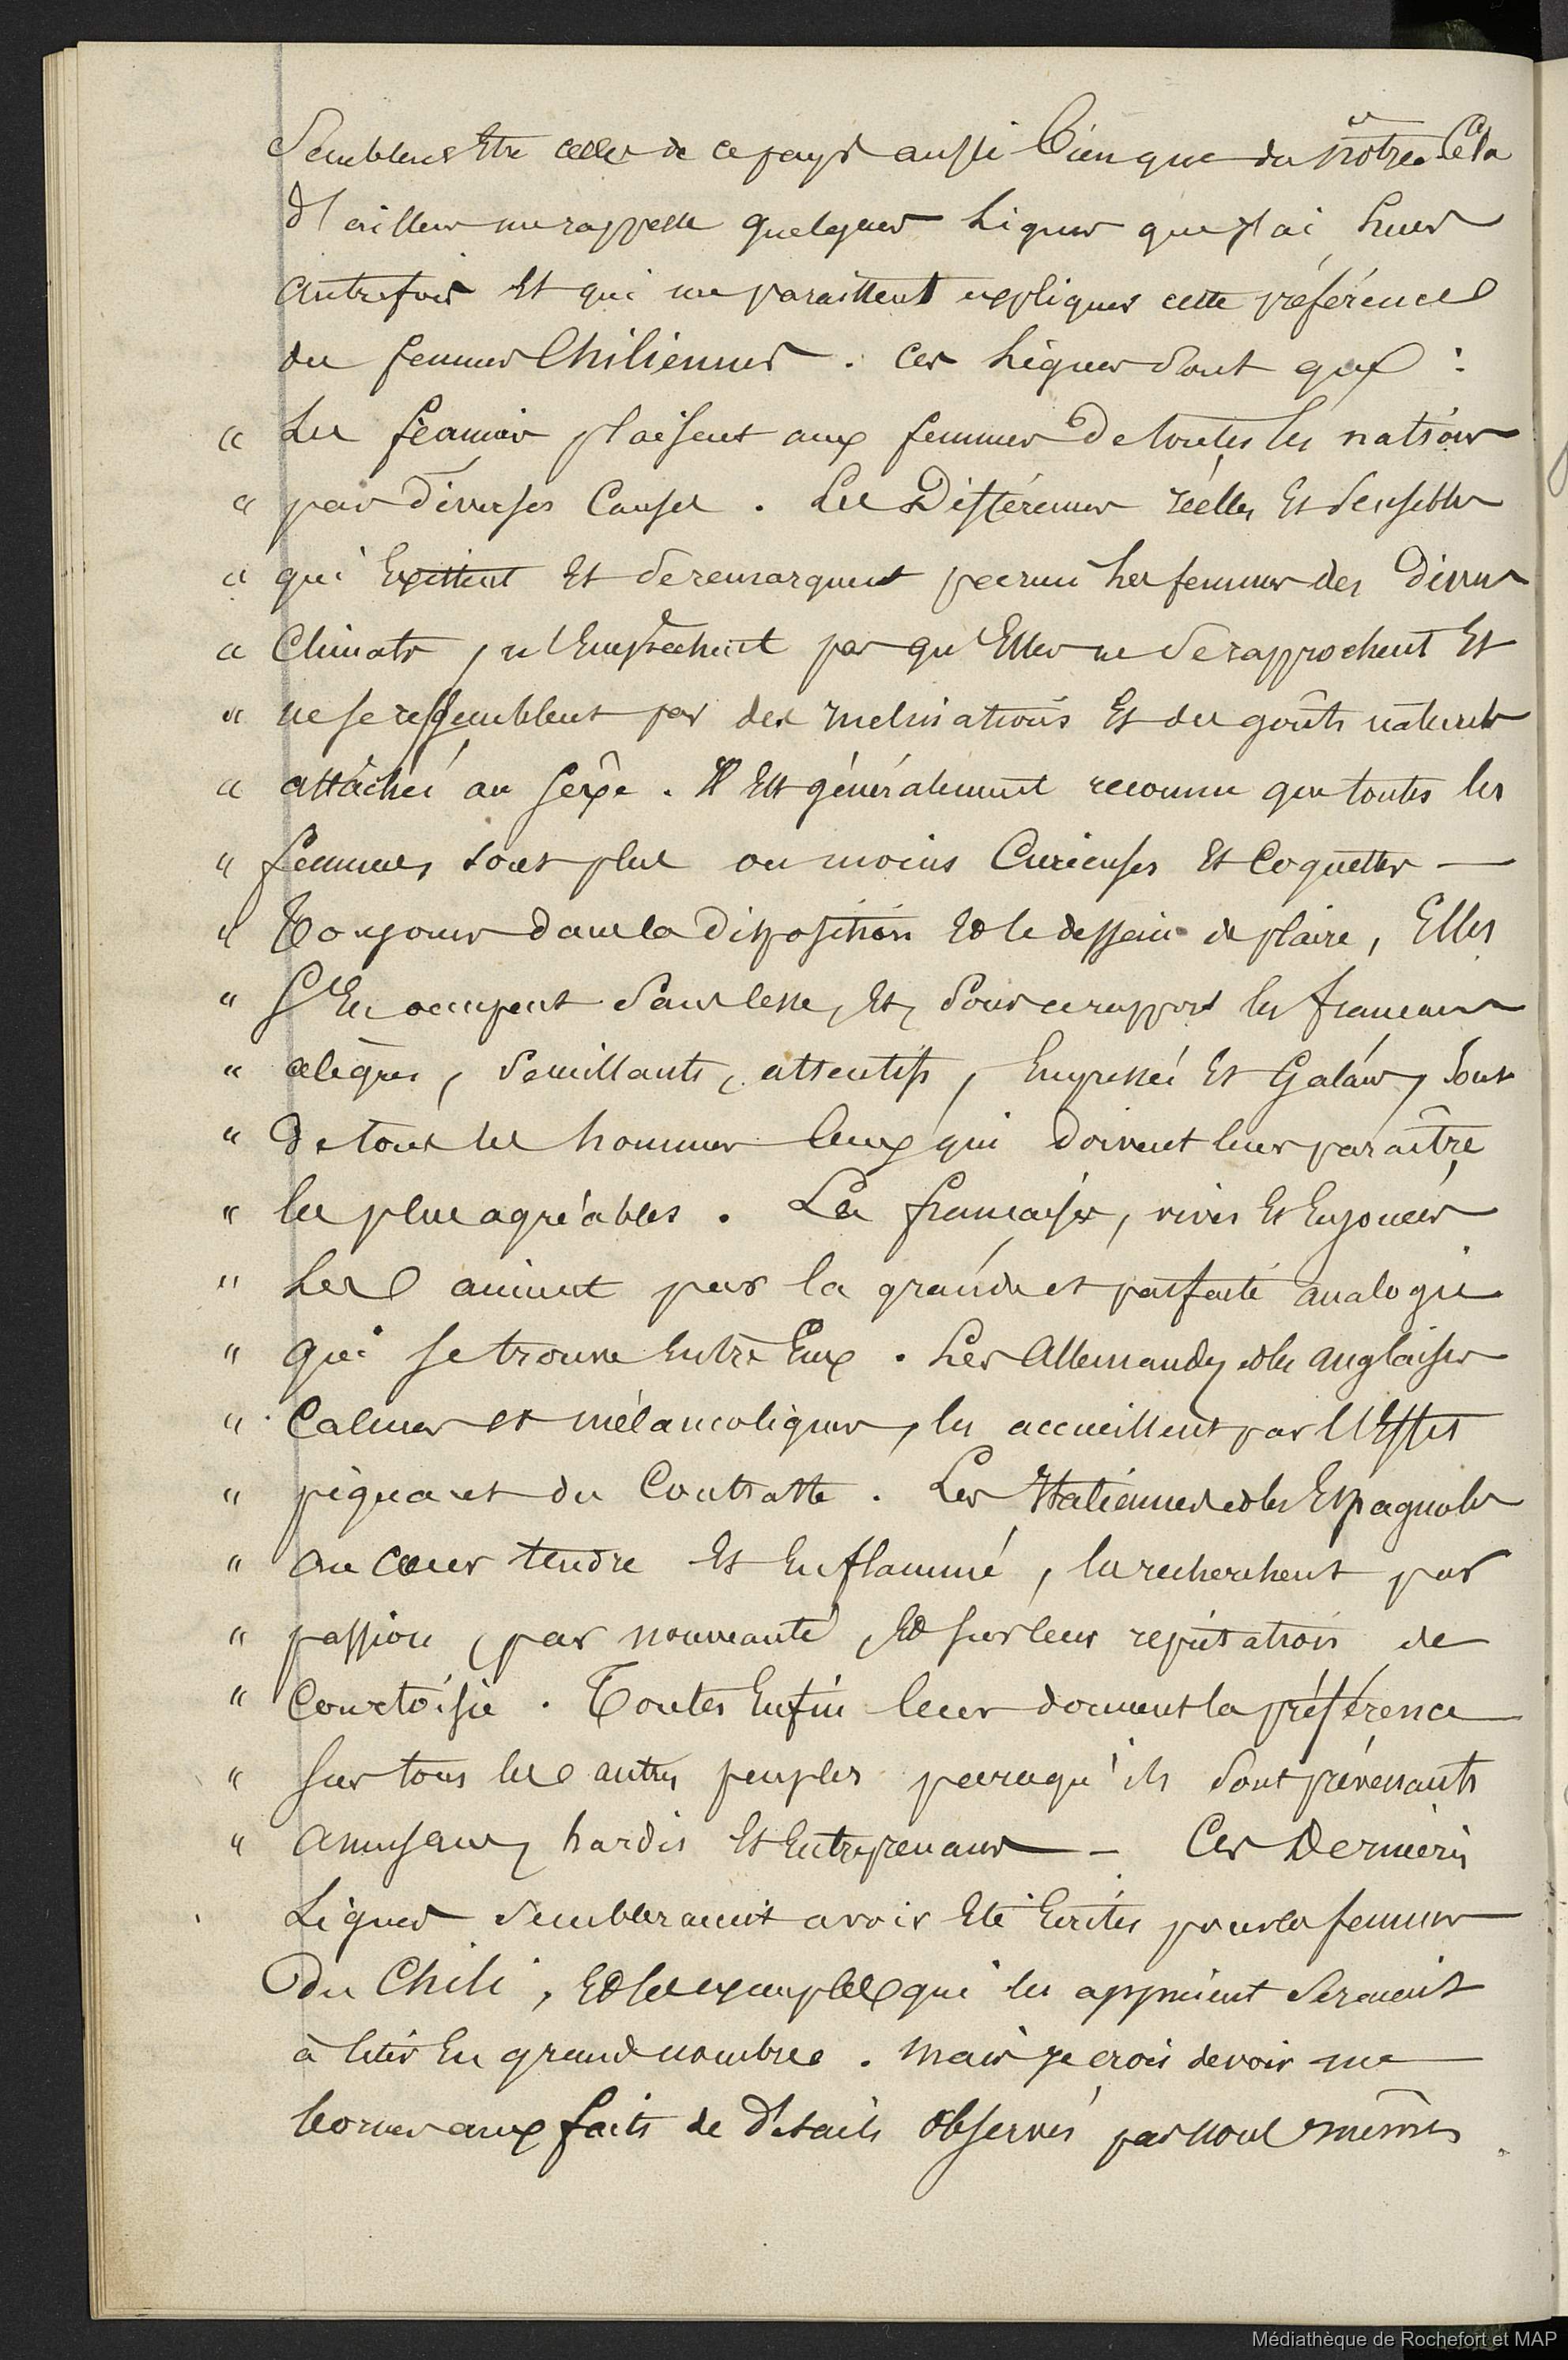 Semblent Etre celles de ce pays aussi bien que du nôtre. Cela
d'ailleurs me rappelle quelques lignes que j'ai lues
autrefois Et qui me paraissent expliquer cette préférence
des femmes Chiliennes. Ces lignes dont que :
" Les français plaisent aux femmes de toutes les nations
" par diverses Causes. Les Différences réelles Et sensibles
" qui Existent Et se remarquent parmi les femmes des divers
" Climats, n'Empêchent pas qu'Elles ne se rapprochent Et
" ne se ressemblent par des inclinations Et des goûts naturels
" attachés au sexe. Il Est généralement reconnu que toutes les
" femmes sont plus ou moins Curieuses Et Coquettes —
" Toujours dans la Disposition Et le dessein de plaire, Elles
" s'En occupent sans cesse, Et, sous ce rapport les français
" alègres, semillants, attentifs, Empressés Et Galans, sont
" de tous les hommes Ceux qui doivent leur paraître
" les plus agréables. Les françaises, vives Et Enjouées
" Les aiment par la grande et parfaite analogie
" qui se trouve Entre Eux. Les Allemandes et les anglaises
" Calmes et mélancoliques, les accueillent par l'Effet
" piquant du Contraste. Les Italiennes et les Espagnoles
" au cœur tendre Et Enflammé, les recherchent par
" passion, par nouveauté, Et sur leur réputation de
" Courtoisie. Toutes Enfin leur donnent la préférence
" sur tous les autres peuples parcequ'ils sont prévenants
" amusans, hardis Et Entreprenans — Ces Dernières
Lignes sembleraient avoir Eté Ecrites pour les femmes
du Chili, Et les exemples qui les appuient seraient
à citer En grand nombre. Mais je crois devoir me
borner aux faits de détails observés par nous mêmes.
Médiathèque de Rochefort et MAP